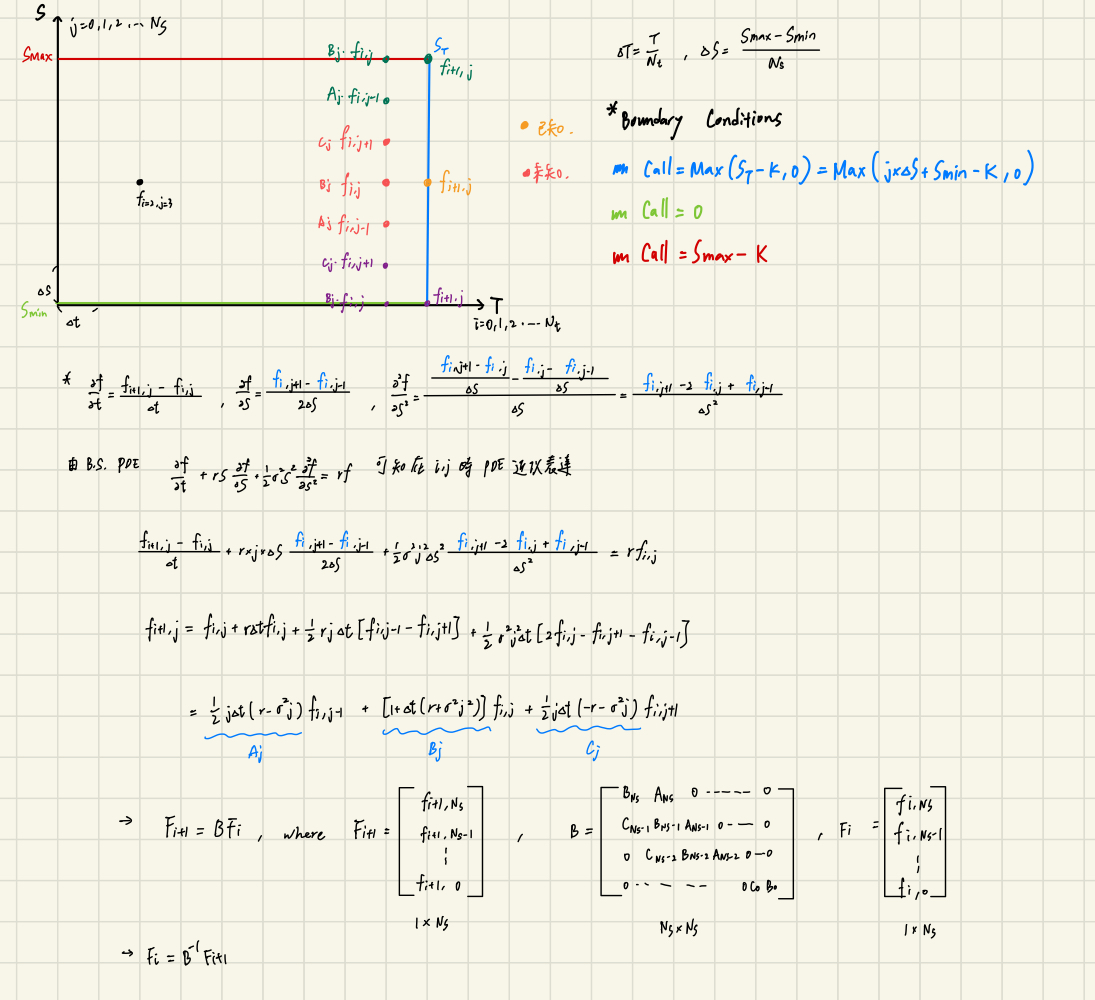 S
j=0,1,2 ... Ns
Smax
Bj·fi,j
ST
fi+1,j
Aj·fi,j-1
Cj fi,j+1
Bj fi,j
fi+1,j
Aj fi,j-1
Cj·fi,j+1
Bj·fi,j
fi+1,j
fi=2,j=3
ΔS
Smin
Δt
T
i=0,1,2 .... Nt
已知.
未知.
ΔT = T/Nt , ΔS = (Smax-Smin)/Ns
*Boundary Conditions
Call = Max(ST-K,0) = Max(j×ΔS+Smin-K,0)
Call = 0
Call = Smax-K
* ∂f/∂t = (fi+1,j - fi,j)/Δt , ∂f/∂S = (fi,j+1 - fi,j-1)/2ΔS , ∂²f/∂S² = ((fi,j+1 - fi,j)/ΔS - (fi,j - fi,j-1)/ΔS)/ΔS = (fi,j+1 -2 fi,j + fi,j-1)/ΔS²
由 B.S. PDE ∂f/∂t + rS ∂f/∂S + ½σ²S² ∂²f/∂S² = rf 可知在 i,j 時 PDE 近似表達
(fi+1,j - fi,j)/Δt + r×j×ΔS (fi,j+1 - fi,j-1)/2ΔS + ½σ²j²ΔS² (fi,j+1 -2 fi,j + fi,j-1)/ΔS² = rfi,j
fi+1,j = fi,j + rΔtfi,j + ½ rjΔt[fi,j-1 - fi,j+1] + ½σ²j²Δt[2fi,j - fi,j+1 - fi,j-1]
= ½jΔt(r-σ²j) fi,j-1 + [1+Δt(r+σ²j²)] fi,j + ½jΔt(-r-σ²j) fi,j+1
Aj Bj Cj
→ Fi+1 = BFi , where Fi+1 = [fi+1,Ns fi+1,Ns-1 ¦ fi+1,0] , B = [BNs ANs 0 ----- 0
CNs-1 BNs-1 ANs-1 0 -- 0
0 CNs-2 BNs-2 ANs-2 0 - 0
0 -- - -- 0 C0 B0] , Fi = [fi,Ns fi,Ns-1 ¦ fi,0]
1×Ns Ns×Ns 1×Ns
→ Fi = B⁻¹Fi+1